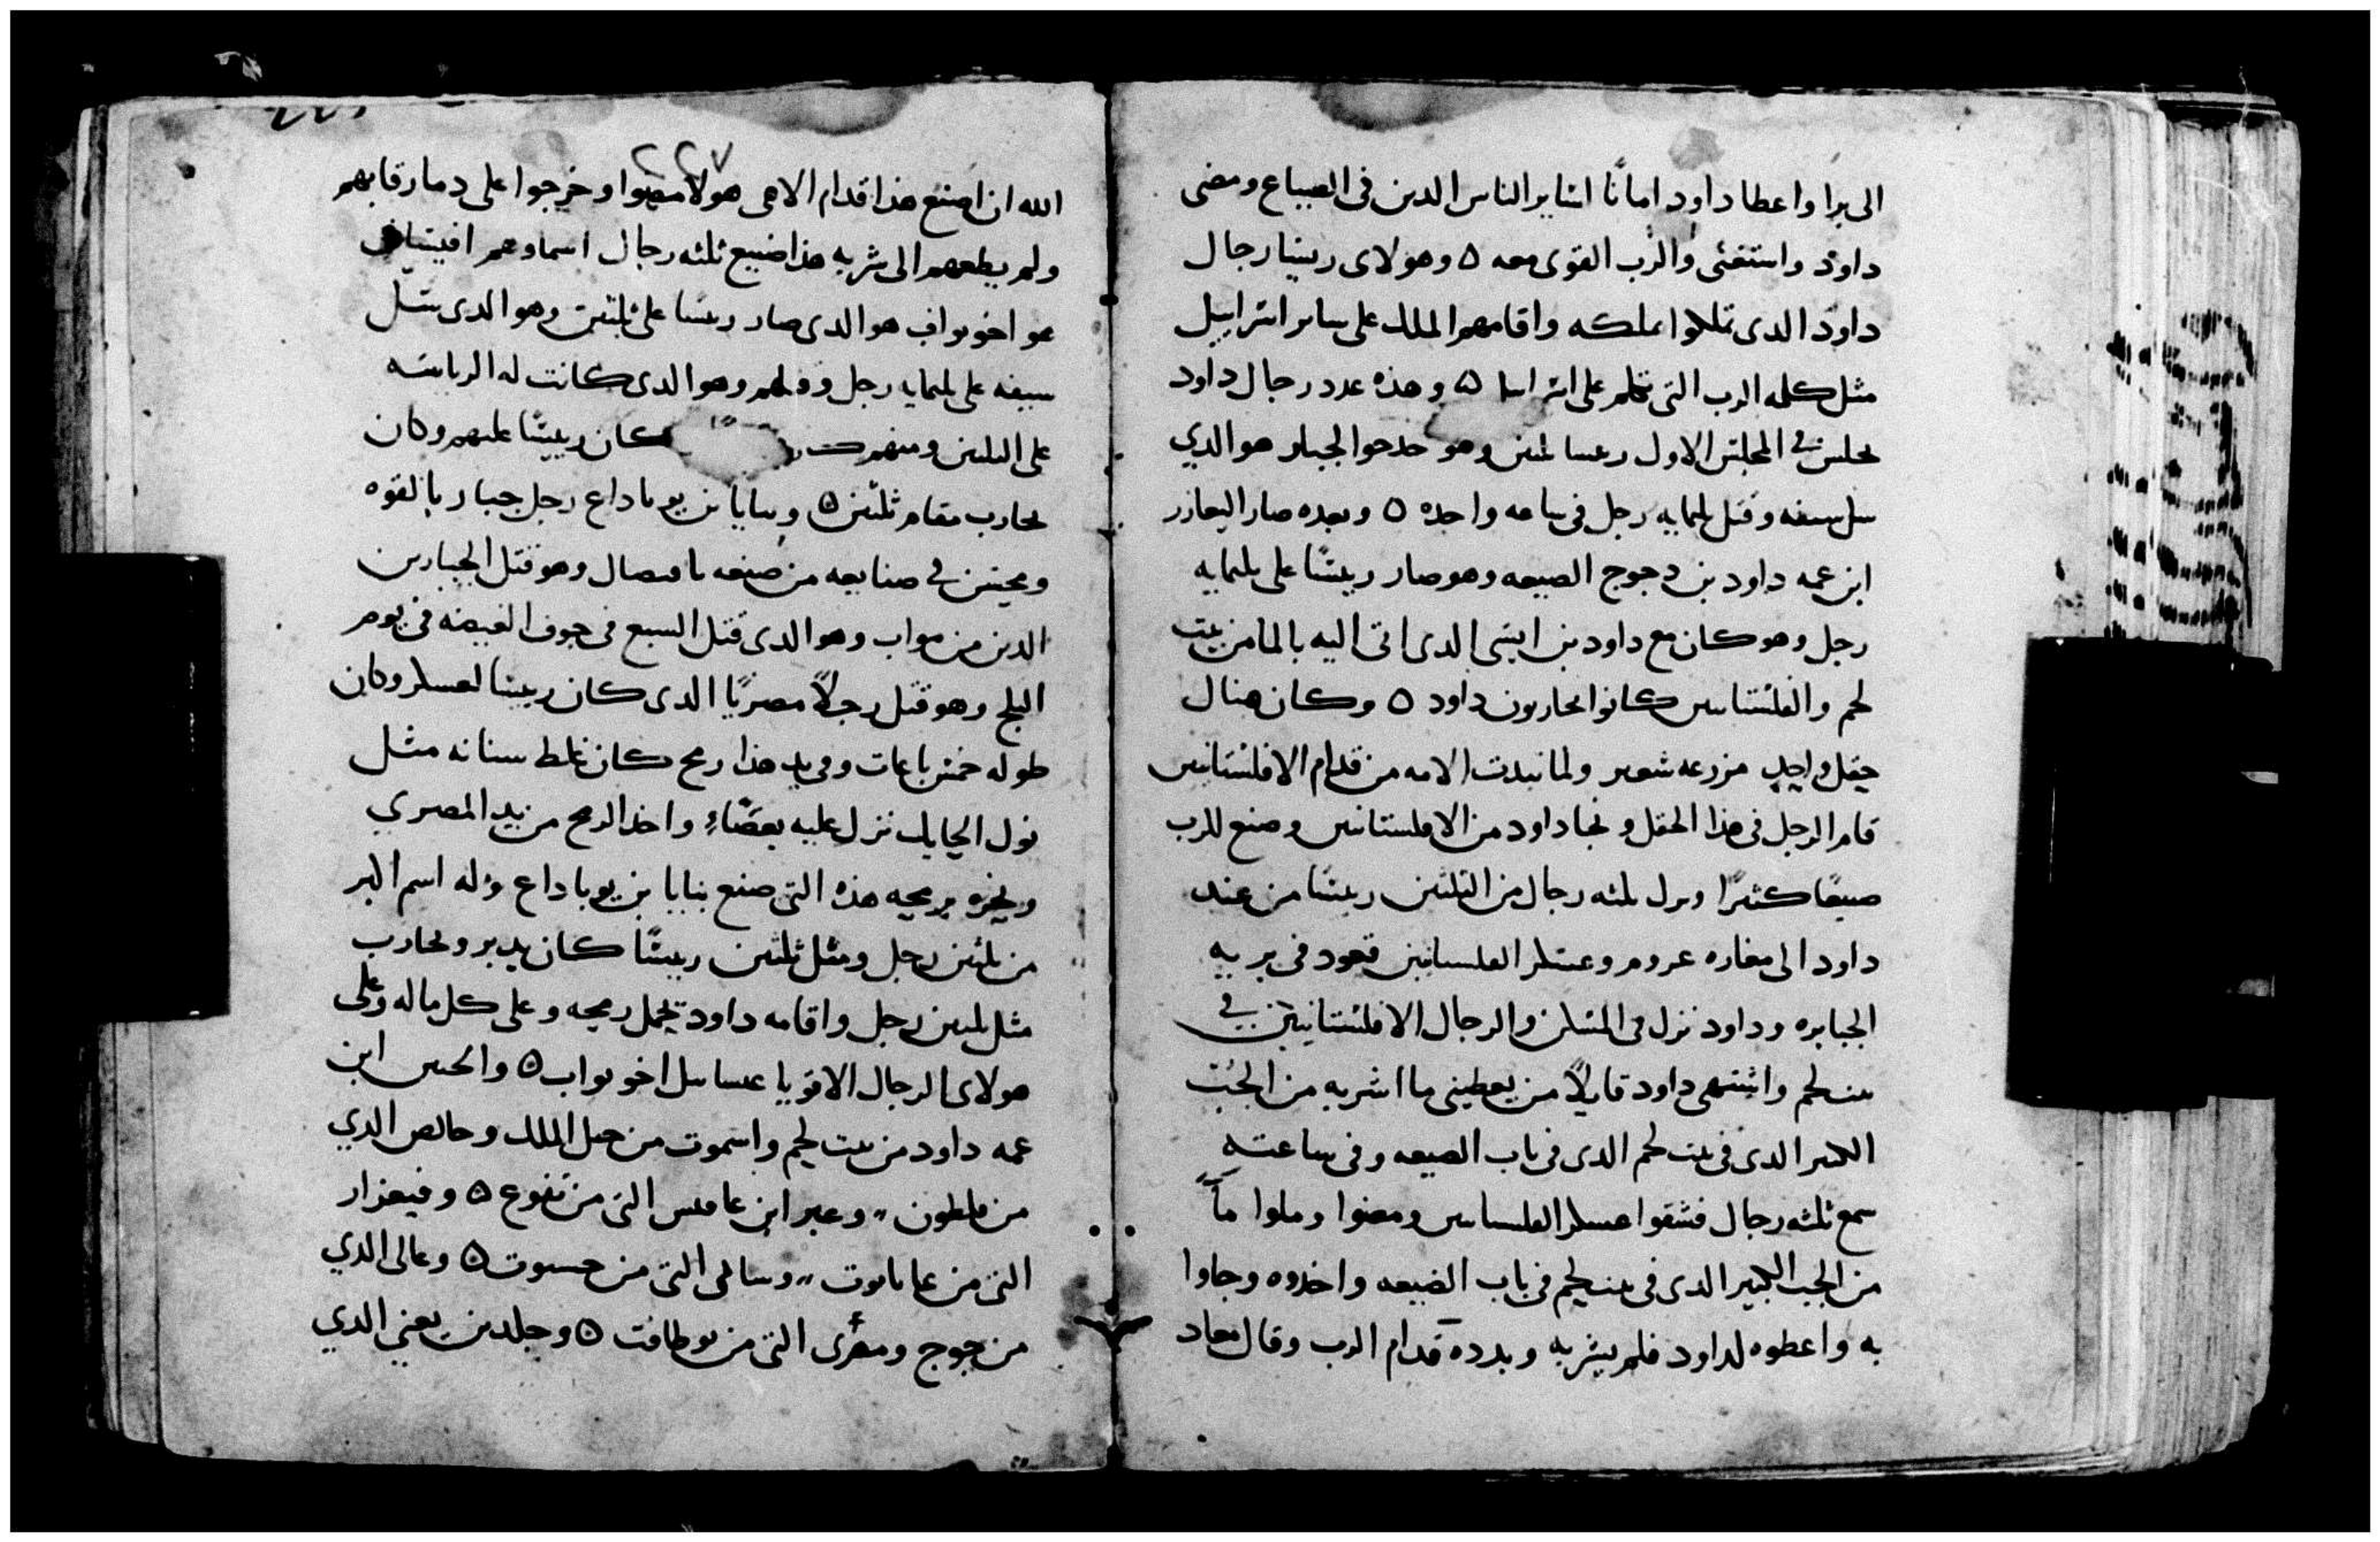 الى برا واعطا داود امانًا لسایر الناس الدین فی الضیاع ومضى
داود واستغنى والرب القوى معه ٥ وهولاى ريسا رجال
داود الدى تملكوا مملكته واقامهم الملك على ساير اسراييل
مثل كلمه الرب التى تكلم على اسراىيل ٥ وهذه عدد رجال داود
مجلس فى المجلس الاول رىسا ثلثين وهو حدحوا الجبار هو الدي
سل سيفه وقتل ثلثمايه رجل فى ساعه واحده ٥ وبعده صار اليعازر
ابن عمه داود بن دجوج الضيعه وهو صار ريسًا على ثلثمايه
رجل وهو كان مع داود بن ايسى الدى اتى اليه بالما من بيت
لحم والفلستانيىن كانوا يحاربون داود ٥ وكان هناك
حقل واحدٍ مزرعه شعير ولما تبدت الامه من قدام الافلستانيين
قام الرجل فى هذا الحقل ونجا داود من الافلستانيىن وصنع للرب
صنيعًا كثيرًا ونزل ثلثه رجال من الثلثين ريسًا من عند
داود الى مغاره عروم وعسكر الفلسانيين قعود فى بريه
الجبابره وداود نزل فى المسكن والرجال الافلستانيين فى
بيت لحم واشتهى داود قايلاً من يعطينى ما اشربه من الجُبّ
الكبير الدى فى بيت لحم الدى فى باب الضيعه وفى ساعته
سمع ثلثه رجال فشقوا عسكر الفلسانيىن ومضوا وملوا مآً
من الجب الكبير الدى فى بيت لحم فى باب الضيعه واخدوه وجاوا
به واعطوه لداود فلم يشربه وبدده قدام الرب وقال معاد
٢٢٧
الله ان اصنع هذا قدام الاهى هولا مضوا وخرجوا على دما رقابهم
ولم يطعهم الى شربه هذا ضنيع ثلثه رجال اسماوهم افيساى
هو اخو يواب هو الدى صار ريسًا على ثلثين وهو الدى سل
سيفه على ثلثمايه رجل وقتلهم وهو الدى كانت له الرياسه
على الثلثين ومنهم كان ريسًا عليهم وكان
يحارب مقام ثلثين ٥ وبنايا بن يوياداع رجل جبار بالقوه
ومحيىن فى صنايعه من ضيعه بافصال وهو قتل الجبارين
الدين من مواب وهو الدى قتل السبع فى جوف الغيضه فى يوم
الثلج وهو قتل رجلاً مصريًا الدى كان ريسا لعسكر وكان
طوله خمس باعات وفى يد هذا رمح كان غلظ سنانه مثل
نول الحايك نزل عليه بعصًاءٍ واخد الرمح من يد المصري
ونحره برمحه هذه التى صنع بنايا بن يوياداع وله اسم اكبر
من ثلثين رجل ومثل ثلثين ريسًا كان يدبر ويحارب
مثل ثلثين رجل واقامه داود يحمل رمحه وعلى كل ماله وعلى
هولاى الرجال الاقويا عساىل اخو يواب ٥ والحىىن ابن
عمه داود من بيت لحم واسموت من جبل الملك وحالص الدي
من فلطون ،، وعير ابن عاقيس التى من تقوع ٥ وفيعزار
التى من عاىاىوت ،، وسالمى التى من حسوت ٥ وعالى الدي
من جوج ومعرى التى من ىوطافت ٥ وجلد بن يعنى الدي